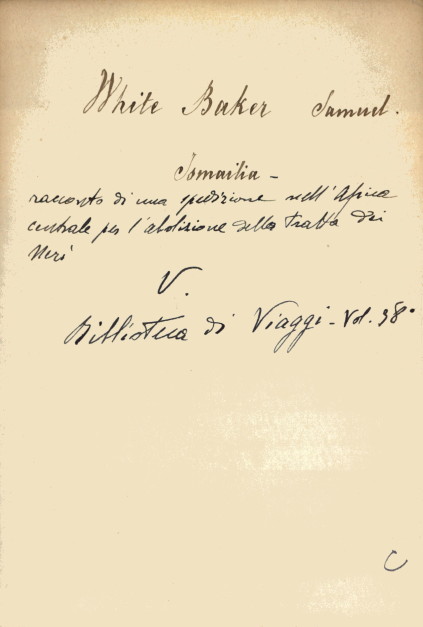 White Baker Samuel.
Ismailia -
racconto di una spedizione nell'Africa
centrale per l'abolizione della tratta dei
Neri
V.
Biblioteca di Viaggi - Vol. 38°
C